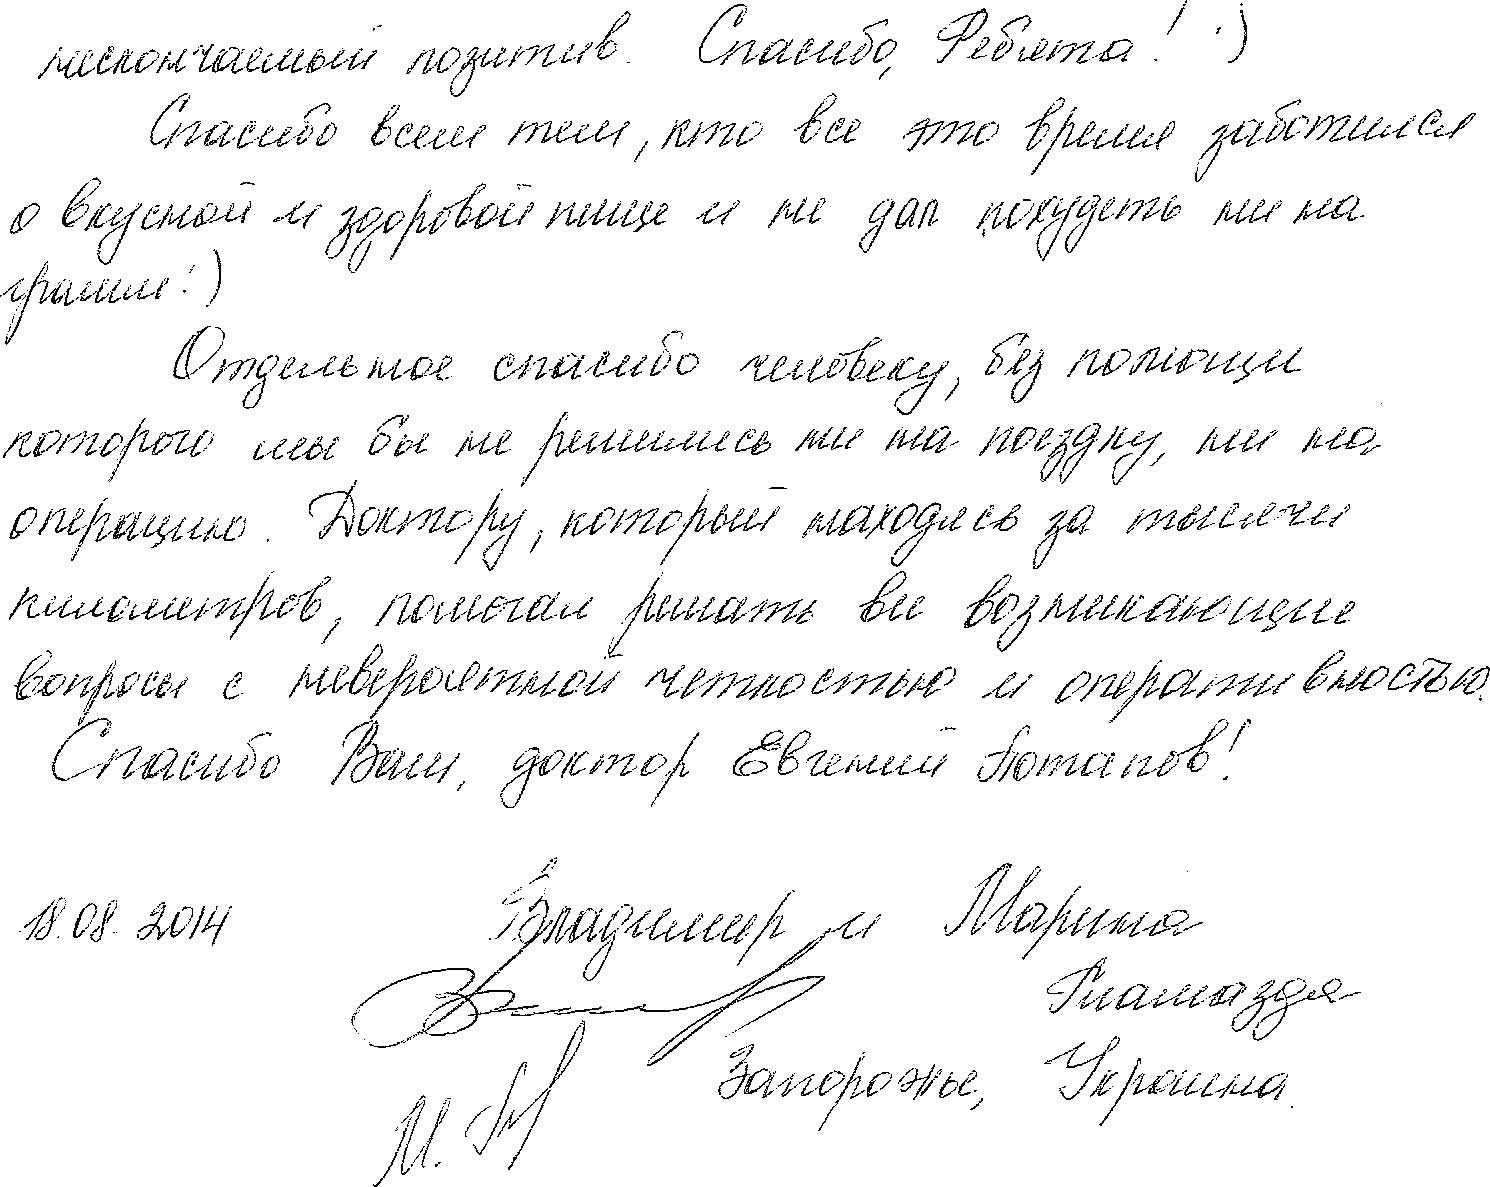 нескончаемый позитив. Спасибо, Ребята! :)
Спасибо всем тем, кто все это время заботился
о вкусной и здоровой пище и не дал похудеть ни на
грамм! :)
Отдельное спасибо человеку, без помощи
которого мы бы не решились ни на поездку, ни на
операцию. Доктору, который находясь за тысячи
километров, помогал решать все возникающие
вопросы с невероятной четкостью и оперативностью.
Спасибо Вам, доктор Евгений Потапов!
18.08.2014 Владимир и Марина
Запорожье, Украина.